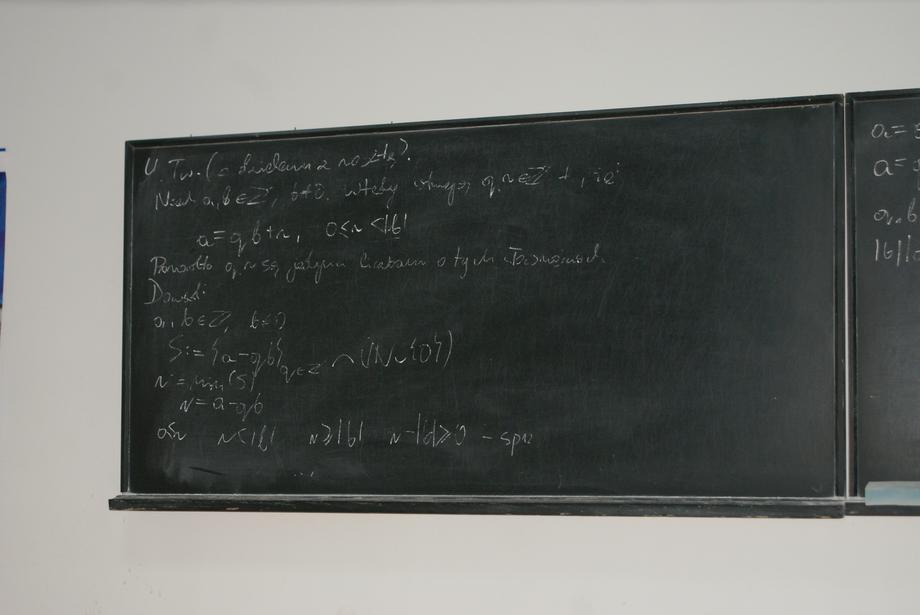 U. Tw. (o dzieleniu z resztą).
Niech a, b ∈ ℤ, b≠0. Wtedy istnieją q, r ∈ ℤ t, że
a=qb+r, 0≤r<|b|
Ponadto q, r są jedynymi liczbami o tych własnościach.
Dowód:
a, b ∈ ℤ, b≠0
S:={a-qb}q∈ℤ ∩ (ℕ∪{0})
r:=min(S)
r=a-qb
0≤r r<|b| r≥|b| r-|b|≥0 - sprz
...
a=
a=
a, b
|b||